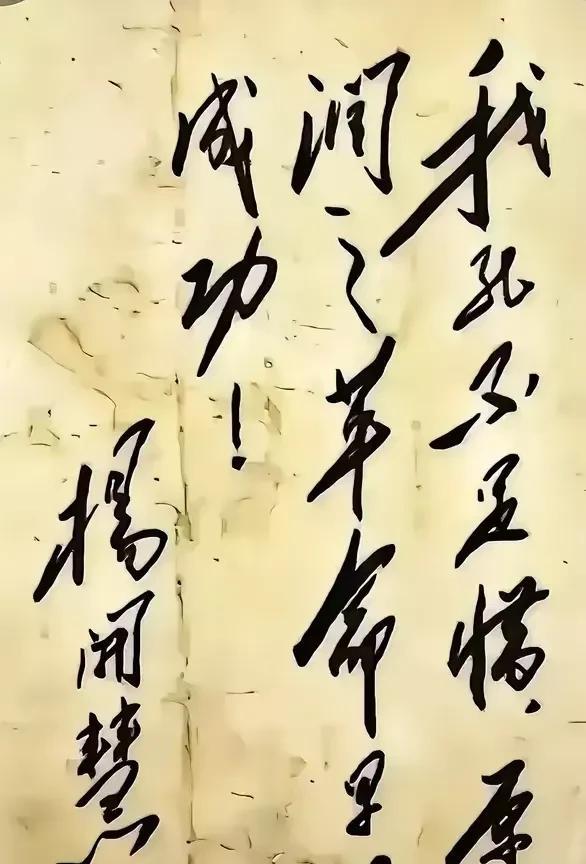 我死不足惜，愿
润之革命早
成功！
楊開慧